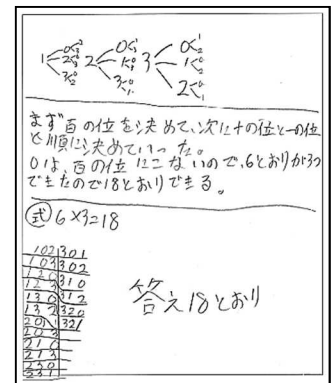 1 0 2 3
2 0 3
3 0 2
2 0 1 3
1 0 3
3 0 1
3 0 1 2
1 0 2
2 0 1
まず百の位を決めて、次に十の位と一の位
と順に決めていった。
0は、百の位にこないので、6とおりが3つ
できたので18とおりできる。
式 6×3=18
102 301
103 302
120 310
123 312
130 320
132 321
201
203
210
213
230
231
答え18とおり